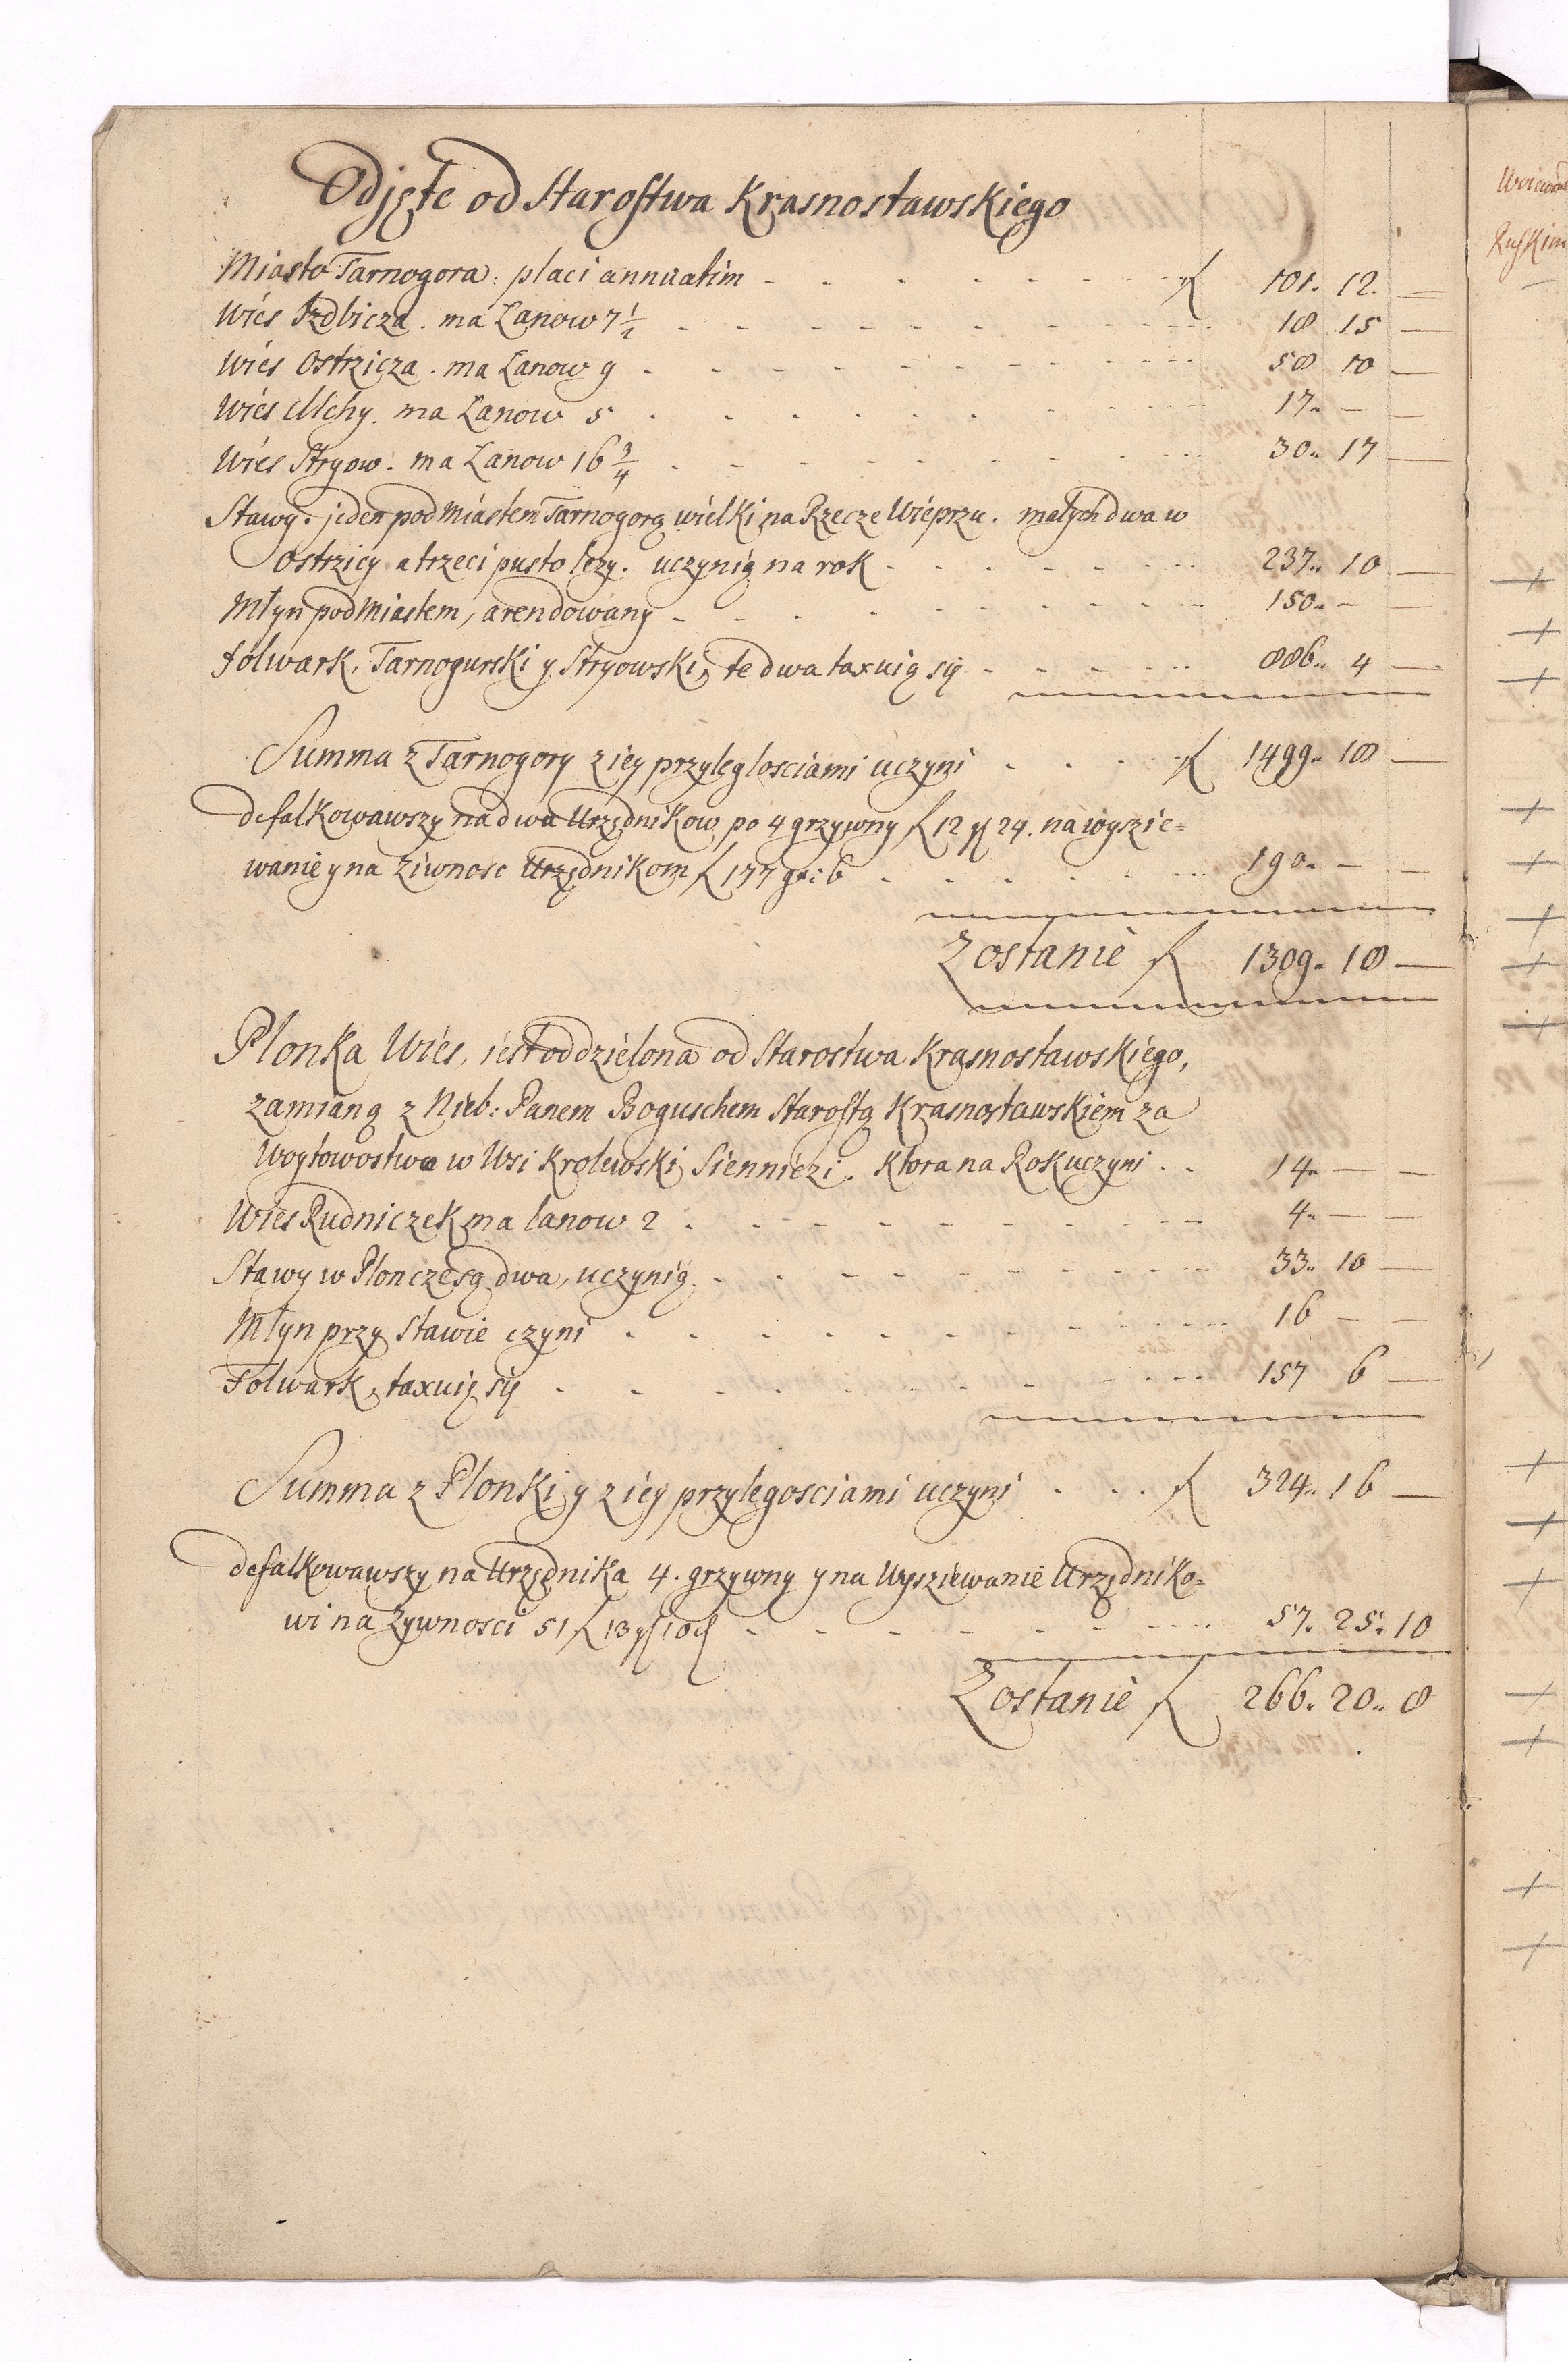 Odjęte od Starostwa Krasnostawskiego
Miasto Tarnogora: placi annuatim - - - - - - - fl 101. 12. —
Wiés Izdbicza. ma Lanow 7 1/2 - - - - - - - 18 15 —
Wiés Ostrzicza. ma Lanow 9 - - - - - - - 58 10 —
Wiés Mchy. ma Lanow 5 - - - - - - - 17. — —
Wiés Stryow. ma Lanow 16 3/4 - - - - - - - 30. 17 —
Stawy. jeden pod Miastem Tarnogorą wielki na Rzecze Wieprzu. małych dwa w
Ostrzicy a trzeci pusto lezy. uczynią na rok - - - - - - 237. 10 —
Młyn pod Miastem, arendowany - - - - - - - 150. — —
Folwark. Tarnogurski y Stryowski, te dwa taxuią się - - - - - 886. 4 —
Summa z Tarnogory z iey przyleglosciami uczyni - - - fl 1499. 18 —
defalkowawszy na dwa Urzędnikow po 4 grzywny fl 12 gl 24. na wyszie=
wanie y na Ziwnosc Urzędnikom fl 177 gr: 6 - - - - - 190. — —
Zostanie fl 1309. 18 —
Plonka Wiés, iest oddzielona od Starostwa Krasnostawskiego,
zamianą z Nieb: Panem Boguschem Starostą Krasnostawskiem za
Woytowostwo w Wsi Krolewski Siennięzi. Ktora na Rok uczyni - - 14. — —
Wies Rudniczek ma lanow 2 - - - - - - - 4. — —
Stawy w Plonczesą dwa, uczynią - - - - - - - 33. 10 —
Młyn przy Stawie czyni - - - - - - - 16 — —
Folwark, taxuię się - - - - - - - 157 6 —
Summa z Plonki y z iey przylegosciami uczyni - - - fl 324. 16 —
defalkowawszy na Urzędnika 4. grzywny y na Wysziewanie Urzędniko=
wi na Zywnosci 51 fl 13 gl 10 d - - - - - - 57. 25. 10
Zostanie fl 266. 20. 8